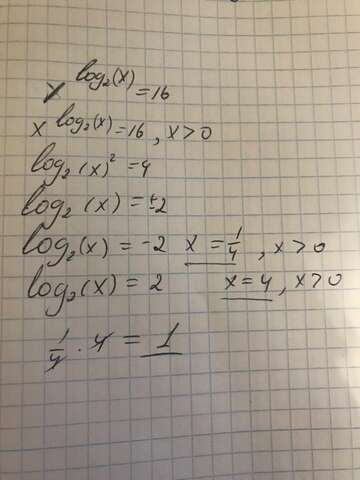 x^log₂(x) = 16
x^log₂(x) = 16, x > 0
log₂(x)² = 4
log₂(x) = ±2
log₂(x) = -2 x = 1/4, x > 0
log₂(x) = 2 x = 4, x > 0
1/4 · 4 = 1